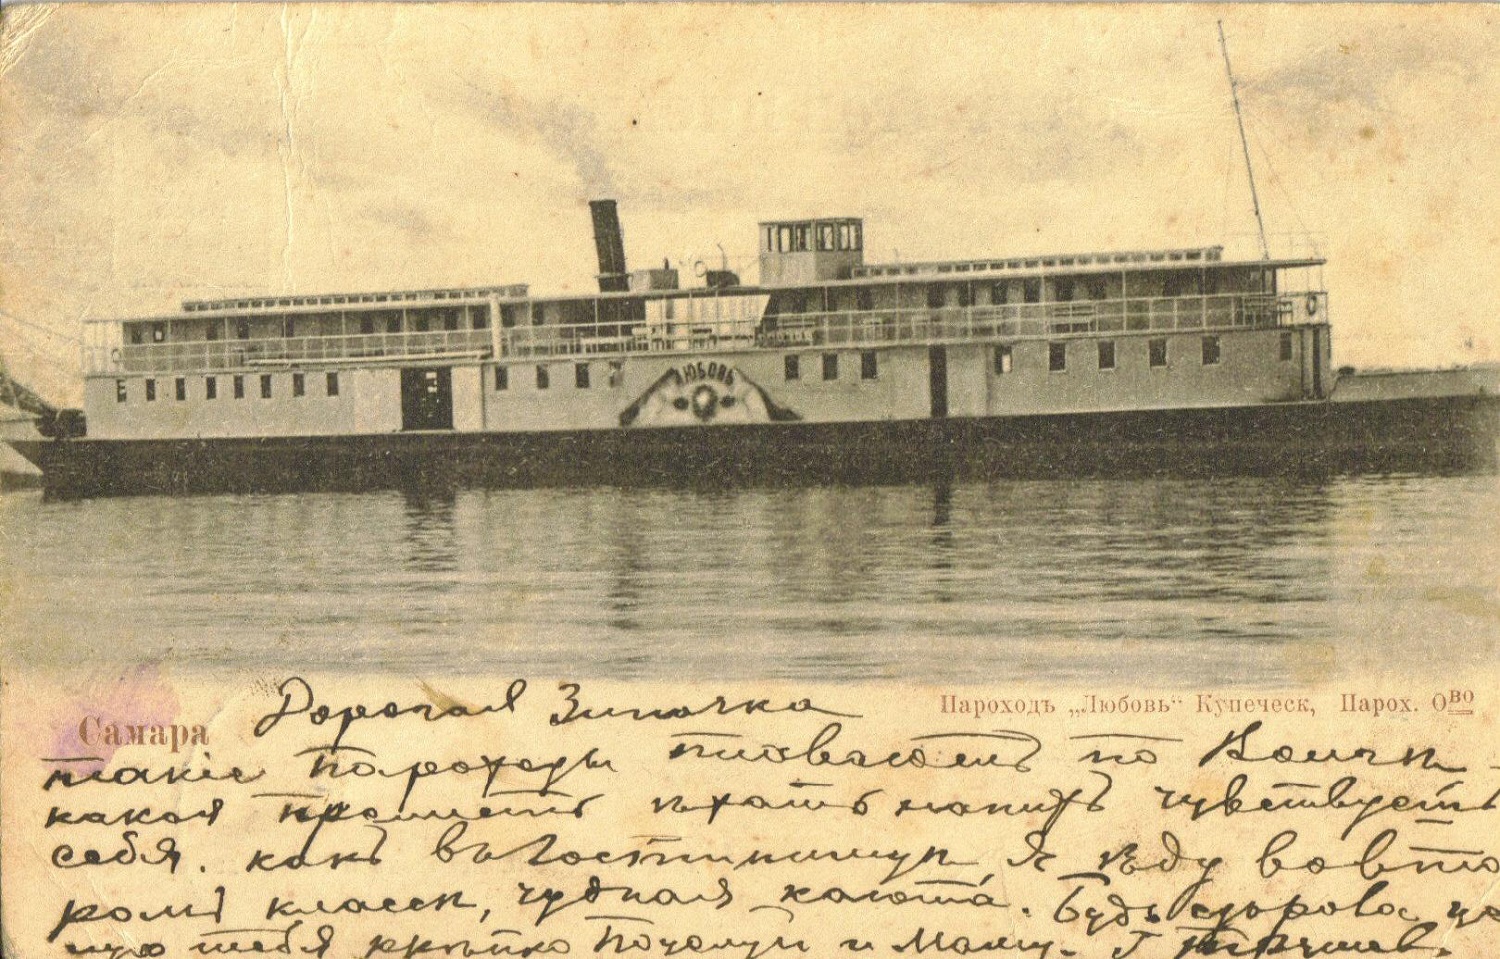 ЛЮБОВЬ
Самара
Пароходъ „Любовь“ Купеческ, Парох. Ово
Дорогая Зиночка
такіе пароходы плаваютъ по Волгѣ -
какая прелесть ѣхать на нихъ чувствуешь
себя. какъ въ гостинницѣ, Я ѣду во вто
ромъ классѣ, чудная каюта. Будь здорова, це
лую тебя крѣпко Поцелуй и Маму. Г